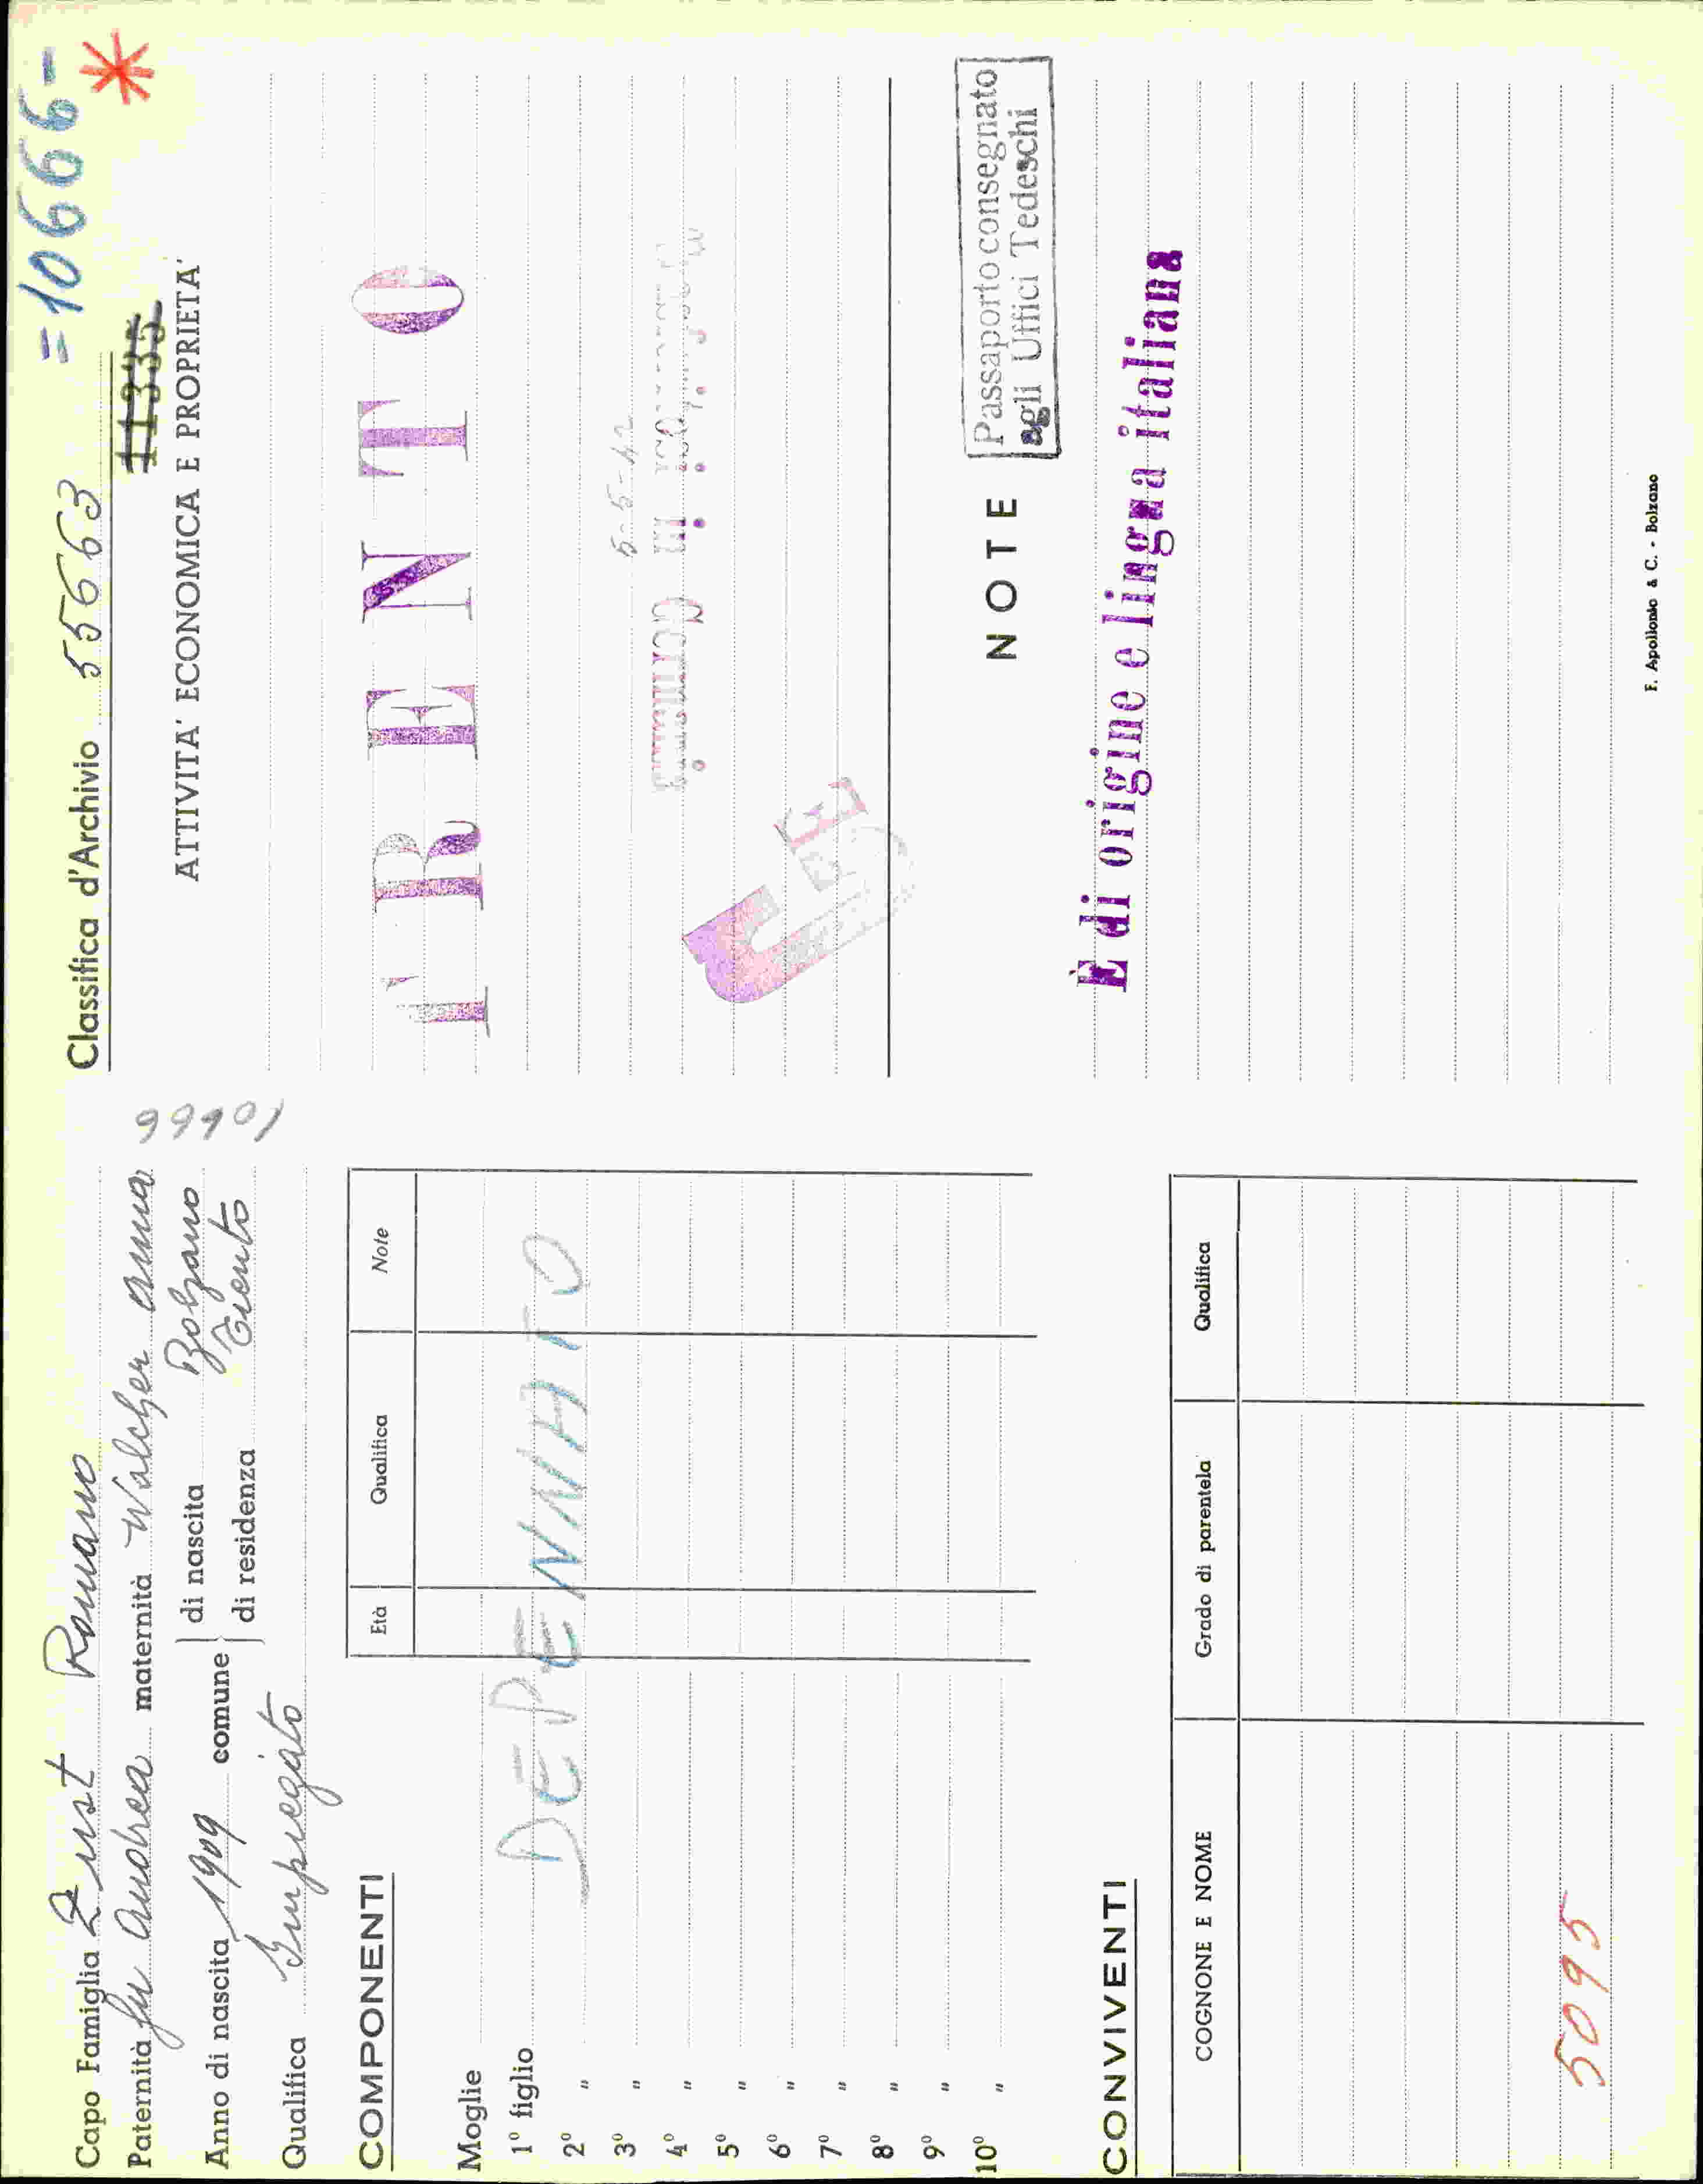 Capo Famiglia Zust Romano
Paternità fu Andrea maternità Walcher Anna
Anno di nascita 1909 comune di nascita Bolzano
di residenza Trento
Qualifica Impiegato
10666
COMPONENTI
Età Qualifica Note
Moglie
1º figlio
2º "
3º "
4º "
5º "
6º "
7º "
8º "
9º "
10º "
DEPENNATO
CONVIVENTI
COGNONE E NOME Grado di parentela Qualifica
5095
Classifica d'Archivio 55663 =10666-
11335
ATTIVITA' ECONOMICA E PROPRIETA'
TRENTO
5-5-42
in Germania
NOTE
Passaporto consegnato
agli Uffici Tedeschi
È di origine e lingua italiana
F. Apollonio & C. - Bolzano